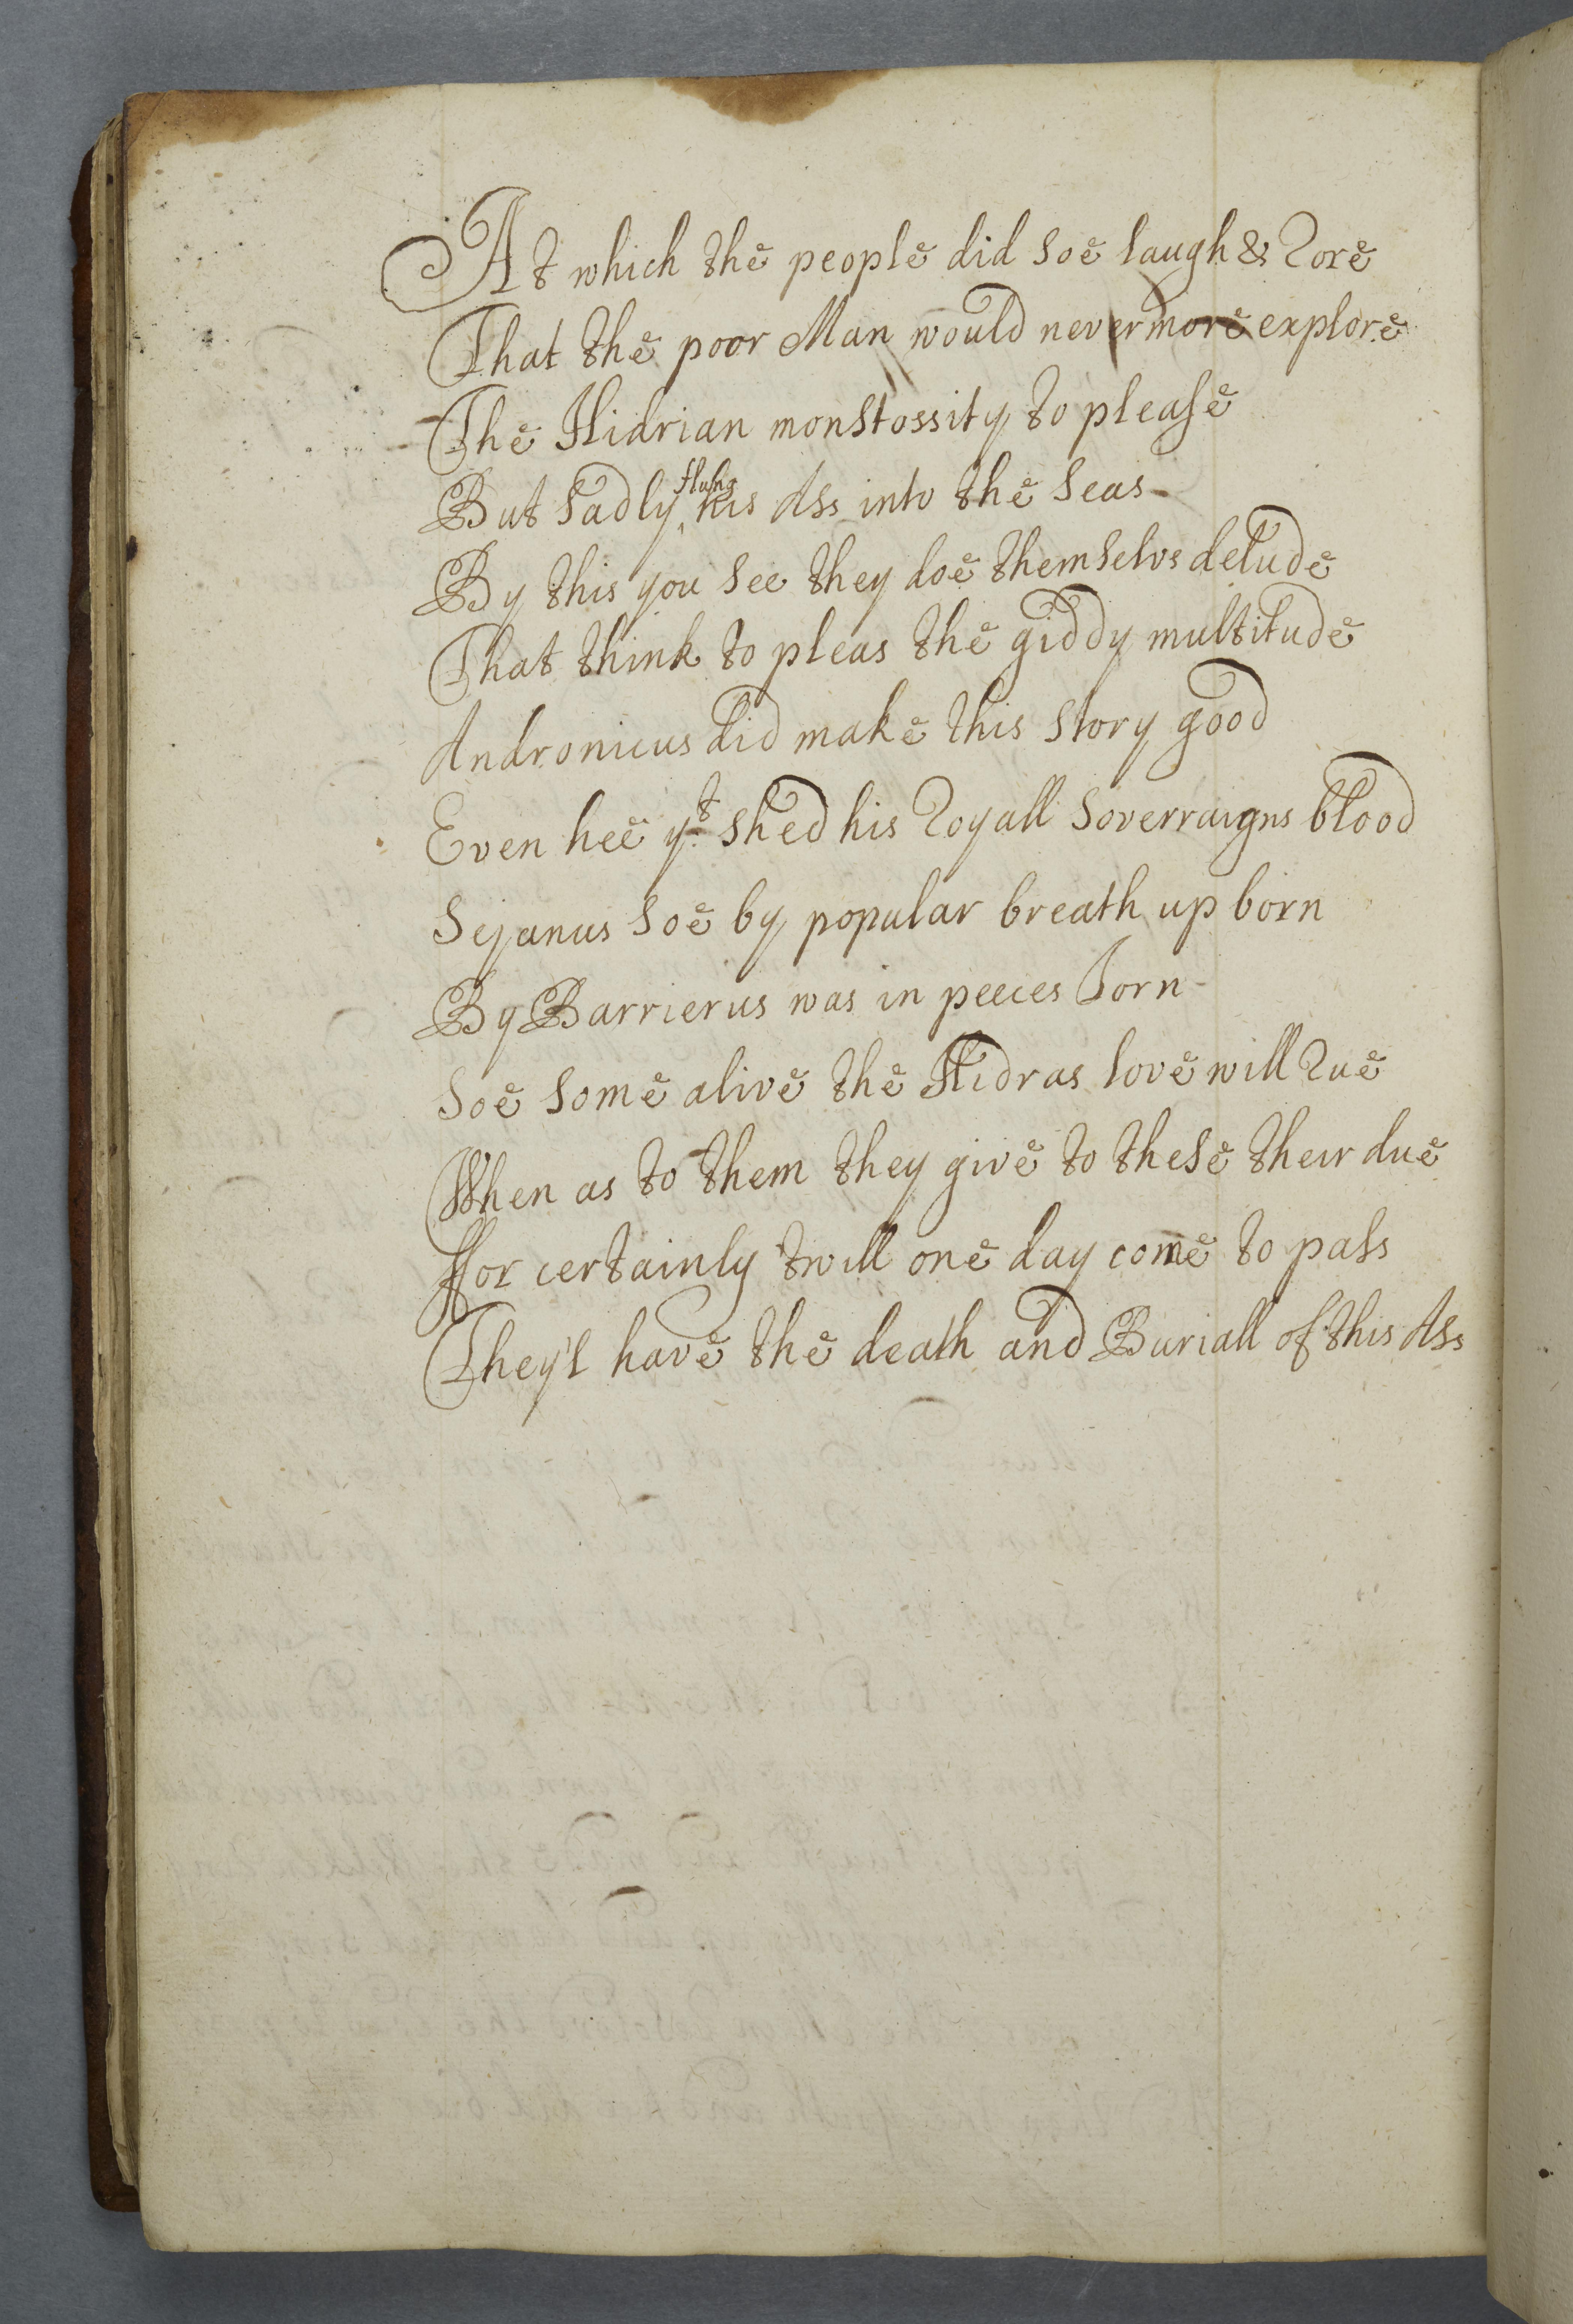 At which the people did soe laugh & Rore
That the poor Man would never more explore
The Hidrian monstossity to please
But sadly flung his Ass into the seas
By this you see they doe themselvs delude
That think to pleas the giddy multitude
Andronicus did make this story good
Even hee yt shed his Royall Soverraigns blood
Sejanus soe by popular breath up born
By Barrierus was in peeces Torn
Soe some alive the Hidras love will Rue
When as to them they give to these their due
Ffor certainly twill one day come to pass
They'l have the death and Buriall of this Ass